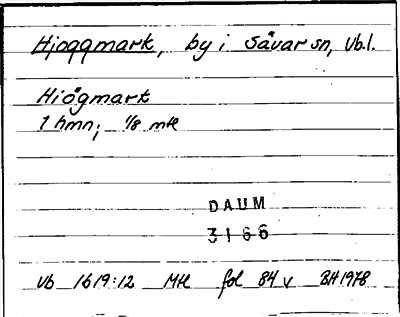 Hjoggmark, by i Sävar sn, Vb.l.
Hiögmark
1 hmn; 1/8 mtl
DAUM
3166
Vb 1619:12 Mtl fol 84 v BH 1978